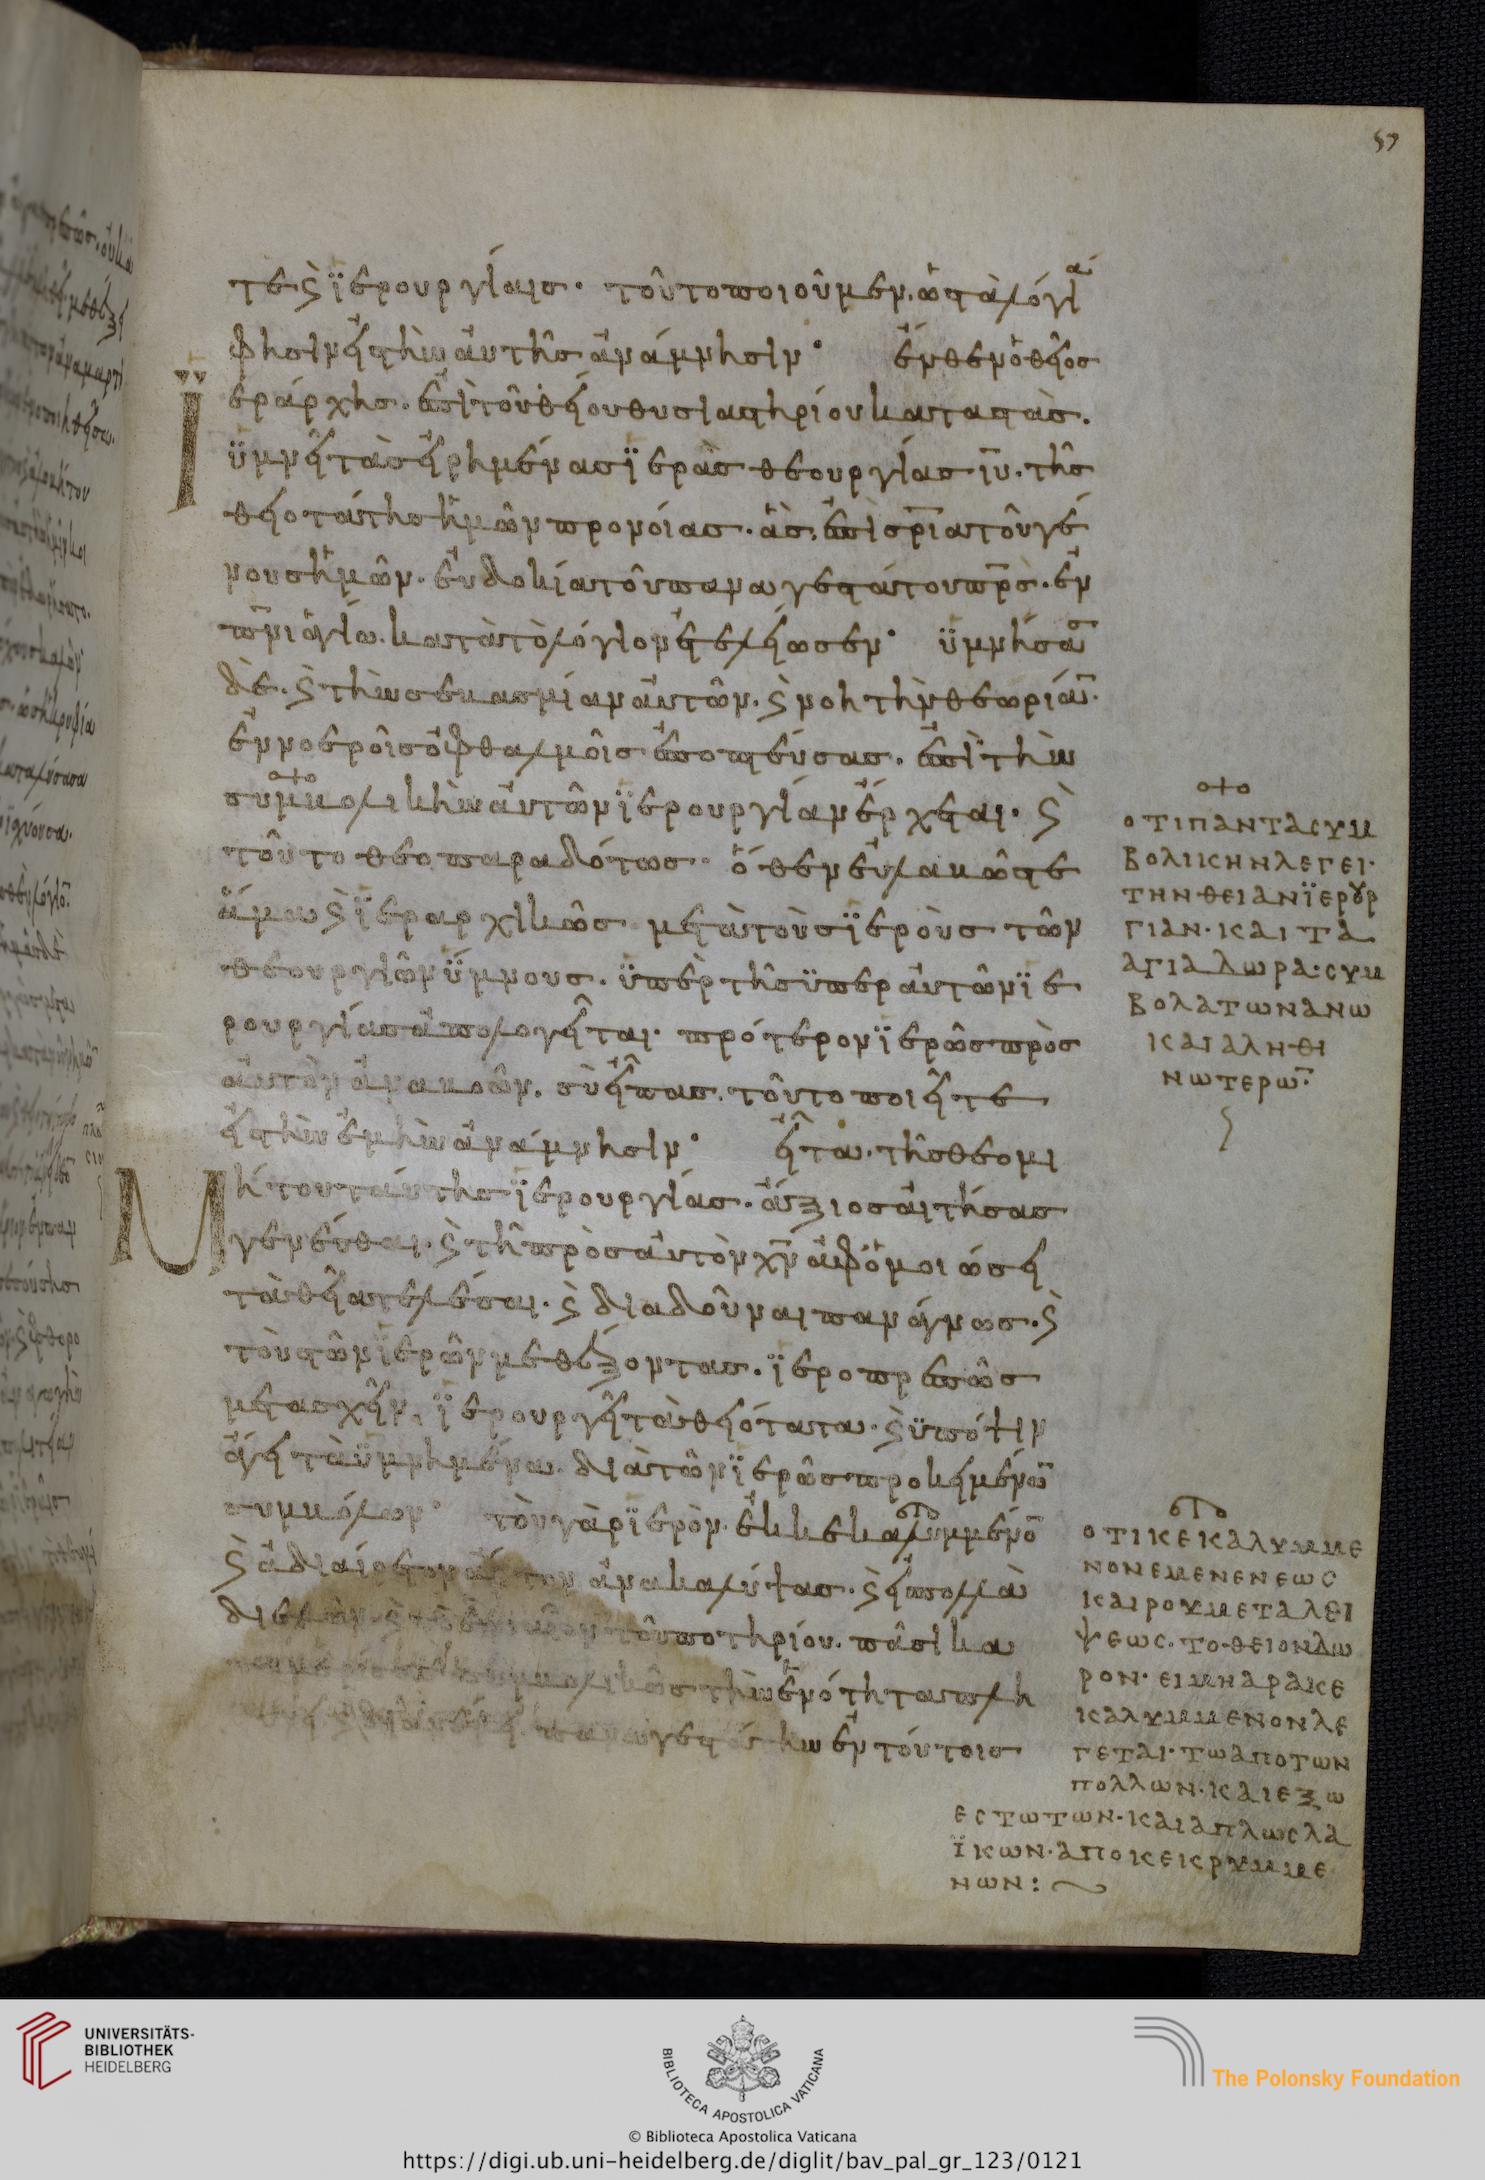 57
τε· ϗ ϊερουργίαισ· τοῦτο ποιοῦμεν, ὡσ τὰ λόγιά
φησιν εἰσ τὴν αὐτῆσ ἀνάμνησιν· ἔνθεν ὁ θεῖοσ
ϊεράρχησ. ἐπὶ τοῦ θείου θυσιαστηρίου καταστὰσ.
ὑμνεῖ τὰσ εἰρημένασ ϊερὰσ θεουργίασ ιυ· τῆσ
θειοτάτησ ἡμῶν προνοίασ. ἃσ, ἐπὶ σρια τοῦ γέ
νουσ ἡμῶν. εὐδοκία τοῦ παναγεστάτου πρσ. ἐν
πνι ἁγίω. κατὰ τὸ λόγιον ἐτελείωσεν· ὑμνήσασ
δὲ. ϗ τὴν σεβασμίαν αὐτῶν. ϗ νοητὴν θεωρίαν.
ἐν νοεροῖσ ὀφθαλμοῖσ ἐποπτεύσασ. ἐπὶ τὴν
συμβολικὴν αὐτῶν ϊερουργίαν ἔρχεται· ϗ
τοῦτο θεοπαραδότωσ· ὅθεν εὐλαβῶσ τε
ἅμα ϗ ϊεραρχικῶσ μετὰ τοὺσ ϊεροὺσ τῶν
θεουργιῶν ὕμνουσ. ὑπὲρ τῆσ ὑπερ αὐτὸν ϊε
ρουργίασ ἀπολογεῖται· πρότερον ϊερῶσ πρὸσ
αὐτὸν ἀναβοῶν. σὺ εἶπασ. τοῦτο ποιεῖτε
εἰσ τὴν ἐμὴν ἀνάμνησιν· εἶτα· τῆσ θεομι
Μήτου ταύτησ ϊερουργίασ. ἄξιοσ αἰτήσασ
γενέσθαι. ϗ τῆ πρὸσ αὐτὸν χν ἀφομοιώσει
τὰ θεῖα τελέσαι. ϗ διαδοῦναι πανάγνωσ. ϗ
τοὺσ τῶν ϊερῶν μεθέξοντασ. ϊεροπρεπῶσ
μετασχεῖν, ϊερουργεῖ τὰ θειότατα· ϗ ὑπόψιν
ἄγει τὰ ὑμνημένα. διὰ τῶν ϊερῶσ προκειμένων
συμβόλων· τὸν γὰρ ϊερὸν. ἐκκεκαλυμμένον
ϗ ἀδιαίρετον ἄρτον ἀνακαλύψασ. ϗ εἰσ πολλὰ
διελὼν. ϗ τὸ ἑνιαῖον τοῦ ποτηρίου. πᾶσι κα
συμβολικῶσ τὴν ἑνότητα πλη
παναγεστάτην ἐν τούτοισ
ΟΤΙ ΠΑΝΤΑ CΥΜ
ΒΟΛΙΚΗΝ ΛΕΓΕΙ·
ΤΗΝ ΘΕΙΑΝ ΪΕΡΟΥΡ
ΓΙΑΝ· ΚΑΙ ΤΑ
ΑΓΙΑ ΔΩΡΑ: CΥΜ
ΒΟΛΑ ΤΩΝ ΑΝΩ
ΚΑΙ ΑΛΗΘΙ
ΝΩΤΕΡΩΝ:
ΟΤΙ ΚΕΚΑΛΥΜΜΕ
ΝΟΝ ΕΜΕΝΕΝ ΕΩC
ΚΑΙΡΟΥ ΜΕΤΑΛΕΙ
ΨΕΩC. ΤΟ ΘΕΙΟΝ ΔΩ
ΡΟΝ· ΕΙ ΜΗ ΑΡΑ ΚΕ
ΚΑΛΥΜΜΕΝΟΝ ΛΕ
ΓΕΤΑΙ· ΤΩ ΑΠΟ ΤΩΝ
ΠΟΛΛΩΝ· ΚΑΙ ΕΞΩ
ΕCΤΩΤΩΝ· ΚΑΙ ΑΠΛΩC ΛΑ
ΪΚΩΝ· ΑΠΟΚΕΚΡΥΜΜΕ
ΝΩΝ:
UNIVERSITÄTS-
BIBLIOTHEK
HEIDELBERG
BIBLIOTECA APOSTOLICA VATICANA
The Polonsky Foundation
© Biblioteca Apostolica Vaticana
https://digi.ub.uni-heidelberg.de/diglit/bav_pal_gr_123/0121